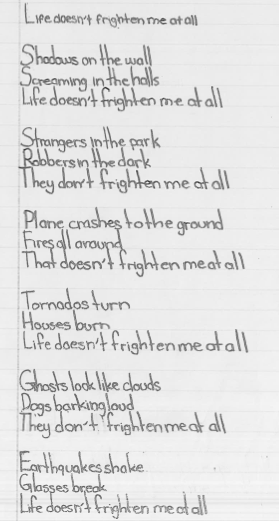 Life doesn't frighten me at all
Shadows on the wall
Screaming in the halls
Life doesn't frighten me at all
Strangers in the park
Robbers in the dark
They don't frighten me at all
Plane crashes to the ground
Fires all around
That doesn't frighten me at all
Tornados turn
Houses burn
Life doesn't frighten me at all
Ghosts look like clouds
Dogs barking loud
They don't frighten me at all
Earthquakes shake
Glasses break
Life doesn't frighten me at all